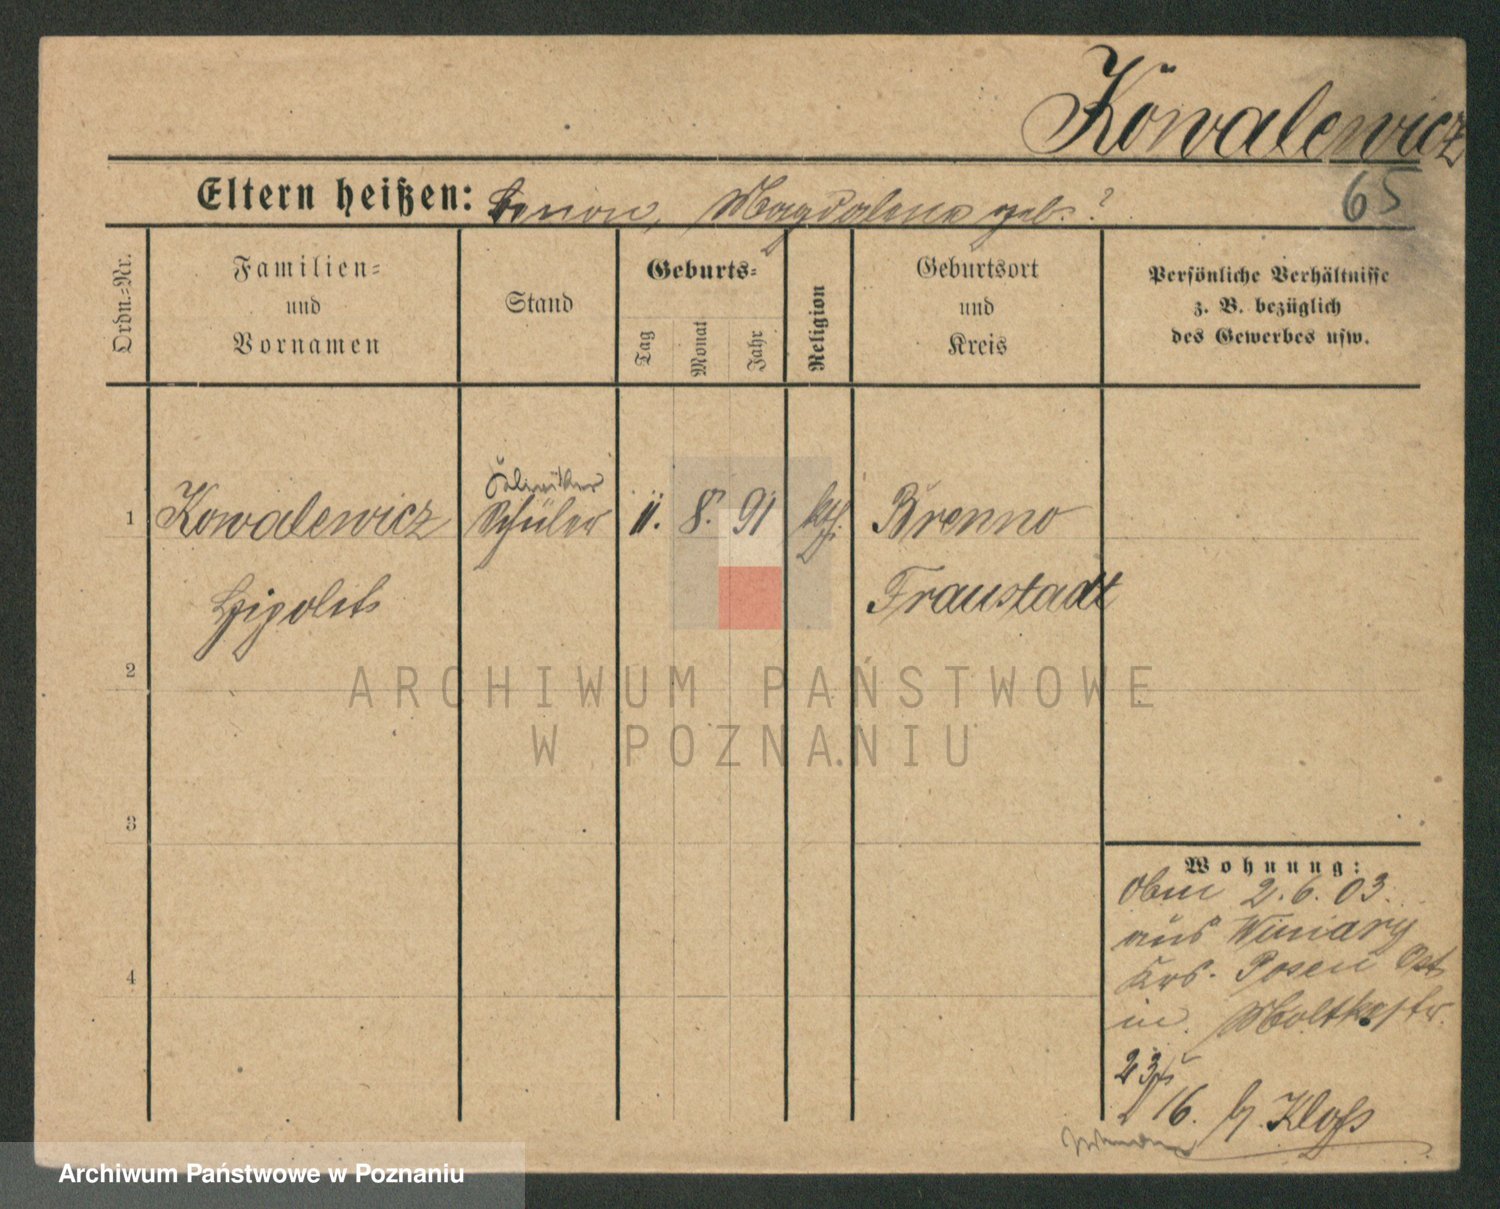 Kowalewicz
65
Eltern heißen: Zenon, Magdalena geb. ?
Ordn.=Nr.
Familien=
und
Vornamen
Stand
Geburts=
Tag
Monat
Jahr
Religion
Geburtsort
und
Kreis
Persönliche Verhältnisse
z. B. bezüglich
des Gewerbes usw.
1 Kowalewicz Schüler 11. 8. 91 kth. Brenno
Hipolit Fraustadt
2
3
4
Wohnung:
2.6.03.
aus Winiary
Krs. Posen Ost
in Moltkestr.
23/5
16. b/. Kloss
ARCHIWUM PAŃSTWOWE
W POZNANIU
Archiwum Państwowe w Poznaniu